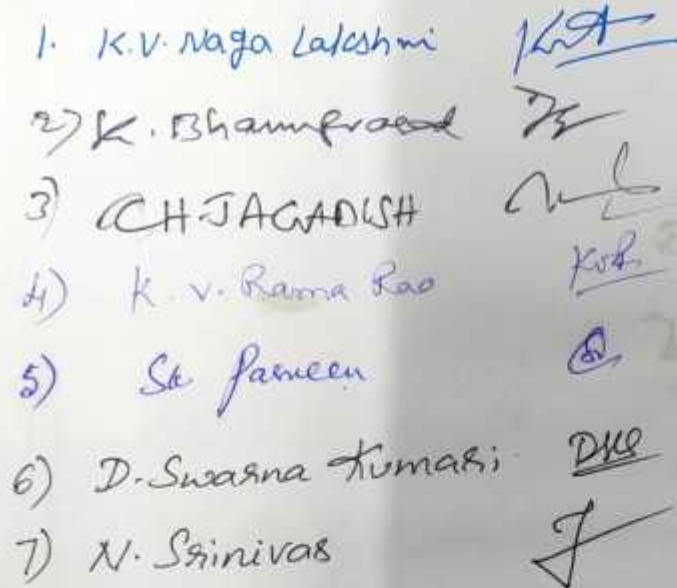 1. K.V. Naga Lakshmi
2) K. Bhanuprasad
3) CH JAGADISH
4) K. V. Rama Rao KVR
5) Sk Parveen
6) D. Swarna Kumari DKS
7) N. Srinivas